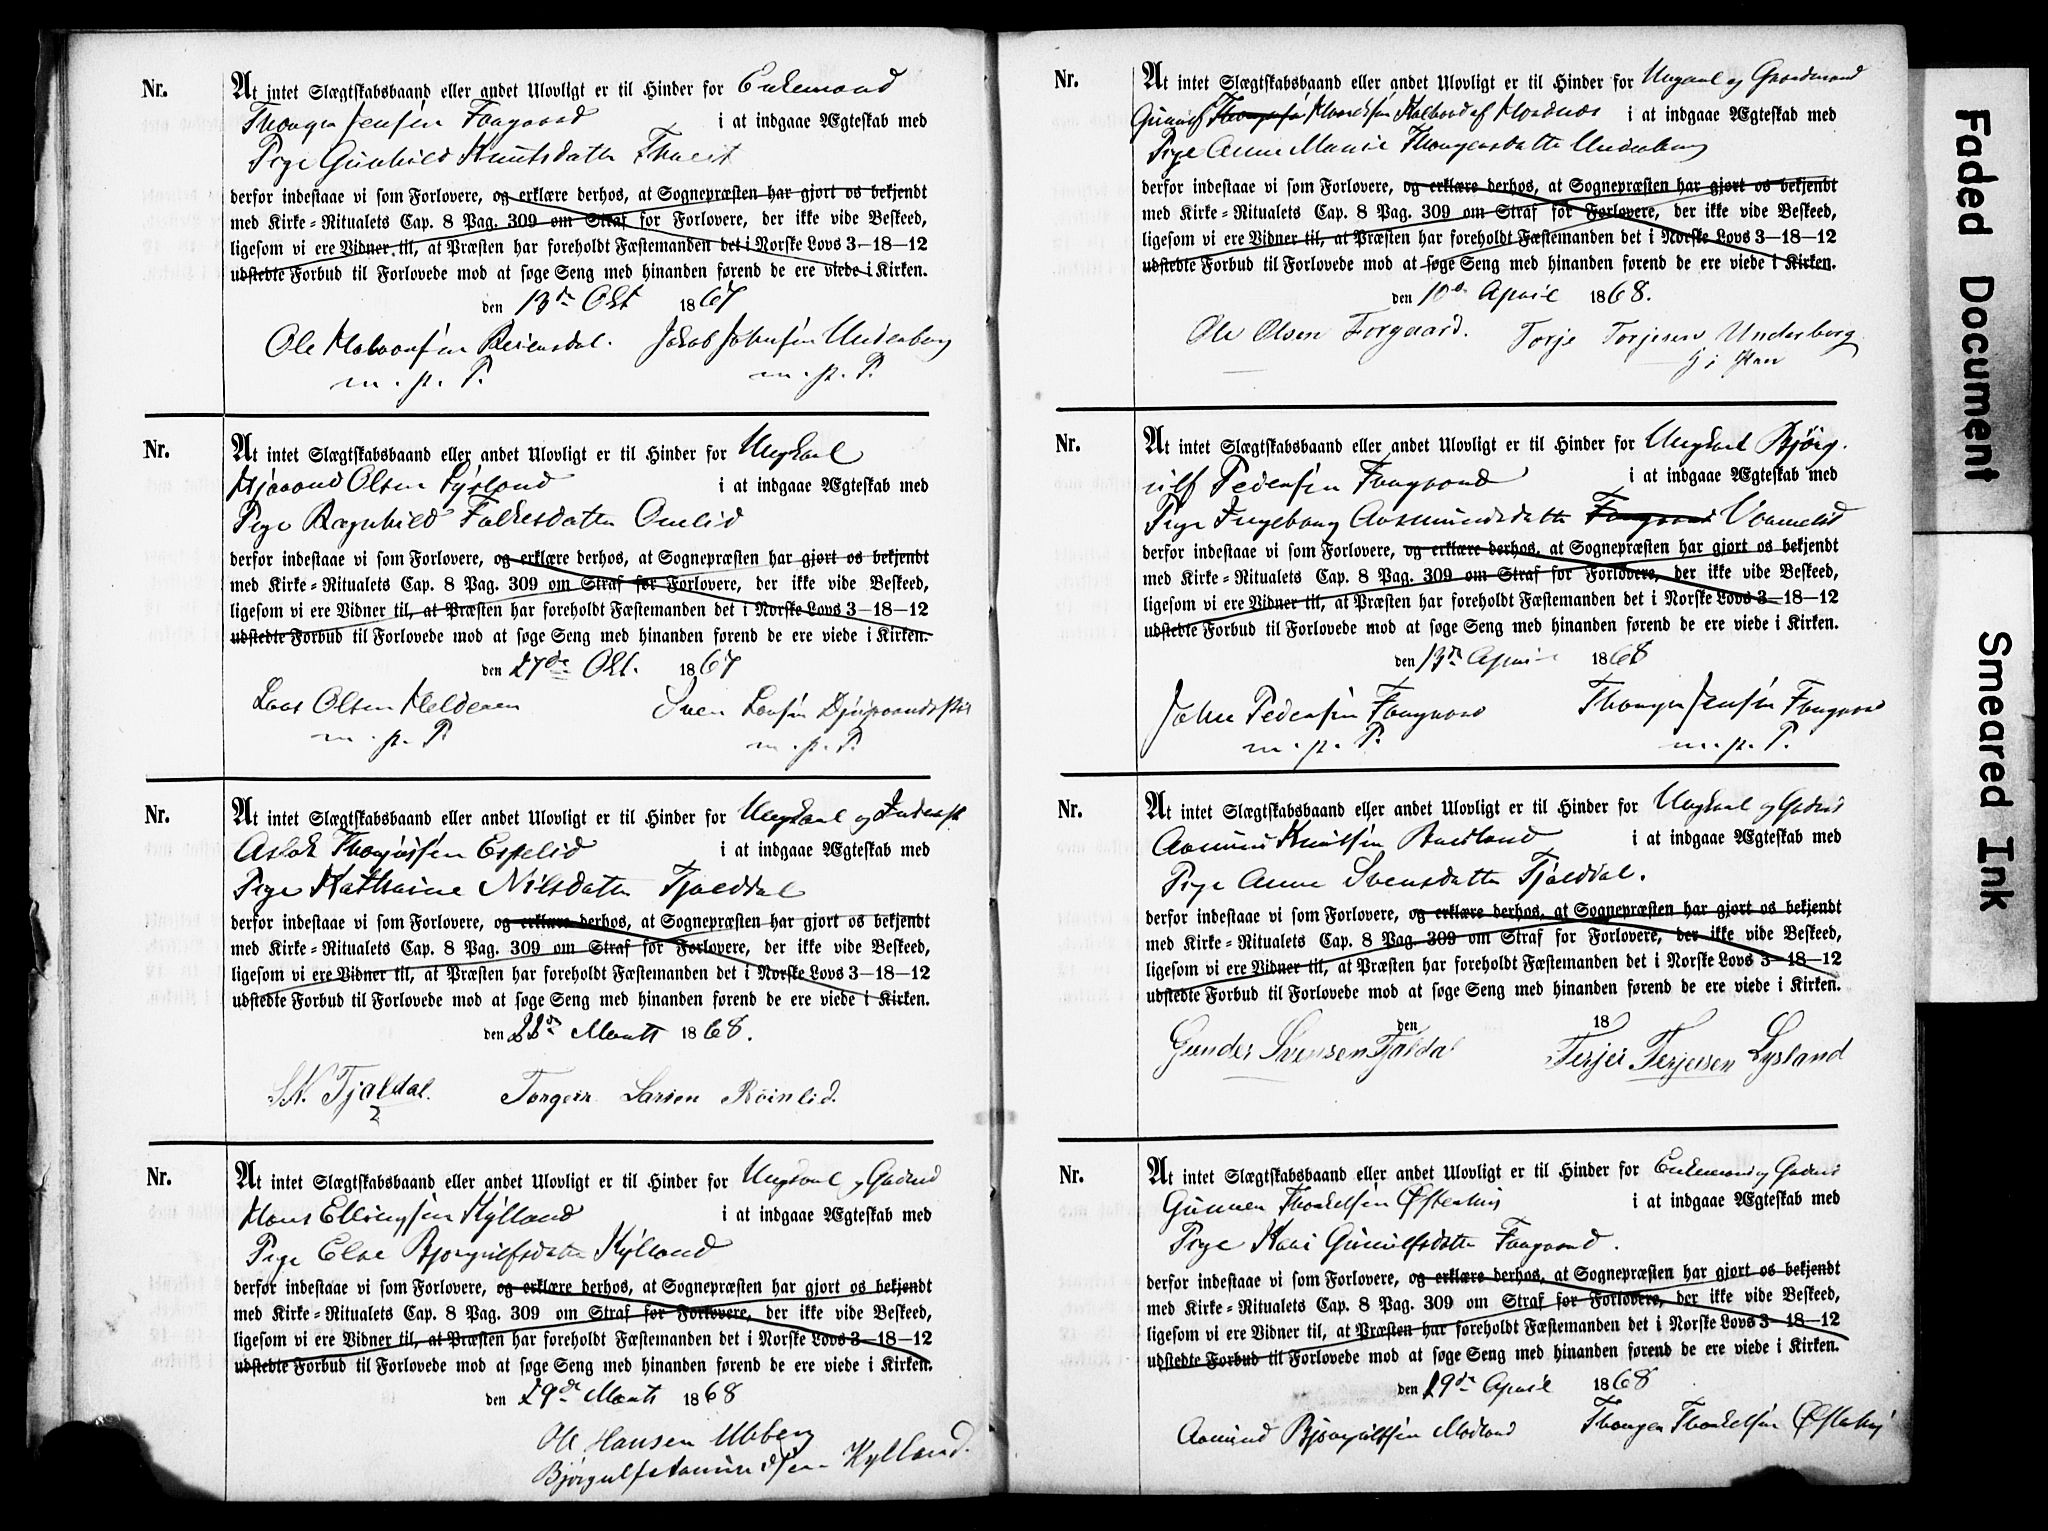 Nr.
At intet Slægtskabsbaand eller andet Ulovligt er til Hinder for Enkemand
Thorger Jensen Faagaard i at indgaae Ægteskab med
Pige Gunhild Knutsdatter
derfor indestaae vi som Forlovere, og erklære derhos, at Sognepræsten har gjort os bekjendt
med Kirke=Ritualets Cap. 8 Pag. 309 om Straf for Forlovere, der ikke vide Beskeed,
ligesom vi ere Vidner til, at Præsten har foreholdt Fæstemanden det i Norske Lovs 3—18—12
udstedte Forbud til Forlovede mod at søge Seng med hinanden førend de ere viede i Kirken.
den 13de Okt 1867
Ole Halvorsen Reiersdal. Jakob Jakobsen Underberg
m. p. P. m. p. P.
Nr.
At intet Slægtskabsbaand eller andet Ulovligt er til Hinder for Ungkarl
Olsen Lysland i at indgaae Ægteskab med
Pige Ragnhild Falkesdatter Omlid
derfor indestaae vi som Forlovere, og erklære derhos, at Sognepræsten har gjort os bekjendt
med Kirke=Ritualets Cap. 8 Pag. 309 om Straf for Forlovere, der ikke vide Beskeed,
ligesom vi ere Vidner til, at Præsten har foreholdt Fæstemanden det i Norske Lovs 3—18—12
udstedte Forbud til Forlovede mod at søge Seng med hinanden førend de ere viede i Kirken.
den 27de Okt. 1867
Lars Olsen Sven Larsen
m. p. P. m. p. P.
Nr.
At intet Slægtskabsbaand eller andet Ulovligt er til Hinder for Ungkarl og
Aslak Thorjussen Espelid i at indgaae Ægteskab med
Pige Kathrine Nilsdatter Tjaldal
derfor indestaae vi som Forlovere, og erklære derhos, at Sognepræsten har gjort os bekjendt
med Kirke=Ritualets Cap. 8 Pag. 309 om Straf for Forlovere, der ikke vide Beskeed,
ligesom vi ere Vidner til, at Præsten har foreholdt Fæstemanden det i Norske Lovs 3—18—12
udstedte Forbud til Forlovede mod at søge Seng med hinanden førend de ere viede i Kirken.
den 22de Marts 1868.
S.N. Tjaldal. Torgeir Larsen Røinlid.
Nr.
At intet Slægtskabsbaand eller andet Ulovligt er til Hinder for Ungkarl og Gaardm
Hans Ellingsen Kylland i at indgaae Ægteskab med
Pige Else Bjorgulfsdatter Kylland
derfor indestaae vi som Forlovere, og erklære derhos, at Sognepræsten har gjort os bekjendt
med Kirke=Ritualets Cap. 8 Pag. 309 om Straf for Forlovere, der ikke vide Beskeed,
ligesom vi ere Vidner til, at Præsten har foreholdt Fæstemanden det i Norske Lovs 3—18—12
udstedte Forbud til Forlovede mod at søge Seng med hinanden førend de ere viede i Kirken.
den 29de Marts 1868
Ole Hansen Ubberg
Bjørgulf Aamundsen Kylland.
Nr.
At intet Slægtskabsbaand eller andet Ulovligt er til Hinder for Ungkarl og Gaardmand
Gunulf i at indgaae Ægteskab med
Pige Anne Marie Thorgersdatter Underberg
derfor indestaae vi som Forlovere, og erklære derhos, at Sognepræsten har gjort os bekjendt
med Kirke=Ritualets Cap. 8 Pag. 309 om Straf for Forlovere, der ikke vide Beskeed,
ligesom vi ere Vidner til, at Præsten har foreholdt Fæstemanden det i Norske Lovs 3—18—12
udstedte Forbud til Forlovede mod at søge Seng med hinanden førend de ere viede i Kirken.
den 10de April 1868.
Ole Olsen Forgaard. Torje Torjesen Underberg
Nr.
At intet Slægtskabsbaand eller andet Ulovligt er til Hinder for Ungkarl Bjørg.
ulf Pedersen Faagaard i at indgaae Ægteskab med
Pige Ingeborg Aasmundsdatter Faagaard Vaamelid
derfor indestaae vi som Forlovere, og erklære derhos, at Sognepræsten har gjort os bekjendt
med Kirke=Ritualets Cap. 8 Pag. 309 om Straf for Forlovere, der ikke vide Beskeed,
ligesom vi ere Vidner til, at Præsten har foreholdt Fæstemanden det i Norske Lovs 3—18—12
udstedte Forbud til Forlovede mod at søge Seng med hinanden førend de ere viede i Kirken.
den 13de April 1868
John Pedersen Faagaard Thorger Jensen Faagaard
m. p. P. m. p. P.
Nr.
At intet Slægtskabsbaand eller andet Ulovligt er til Hinder for Ungkarl og Gaardm
Aamund Knutsen i at indgaae Ægteskab med
Pige Anne Svensdatter Tjaldal.
derfor indestaae vi som Forlovere, og erklære derhos, at Sognepræsten har gjort os bekjendt
med Kirke=Ritualets Cap. 8 Pag. 309 om Straf for Forlovere, der ikke vide Beskeed,
ligesom vi ere Vidner til, at Præsten har foreholdt Fæstemanden det i Norske Lovs 3—18—12
udstedte Forbud til Forlovede mod at søge Seng med hinanden førend de ere viede i Kirken.
den 18
Gunder Svensen Tjaldal Terjer Terjersen Lysland
Nr.
At intet Slægtskabsbaand eller andet Ulovligt er til Hinder for Enkemand og Gaardm
Gunner Thorkelsen Øftenbig i at indgaae Ægteskab med
Pige Kari Gunulfsdatter Faagaard.
derfor indestaae vi som Forlovere, og erklære derhos, at Sognepræsten har gjort os bekjendt
med Kirke=Ritualets Cap. 8 Pag. 309 om Straf for Forlovere, der ikke vide Beskeed,
ligesom vi ere Vidner til, at Præsten har foreholdt Fæstemanden det i Norske Lovs 3—18—12
udstedte Forbud til Forlovede mod at søge Seng med hinanden førend de ere viede i Kirken.
den 19de April 1868
Aamund Bjørgulfsen Modland Thorger Thorkelsen
Faded Document
Smeared Ink